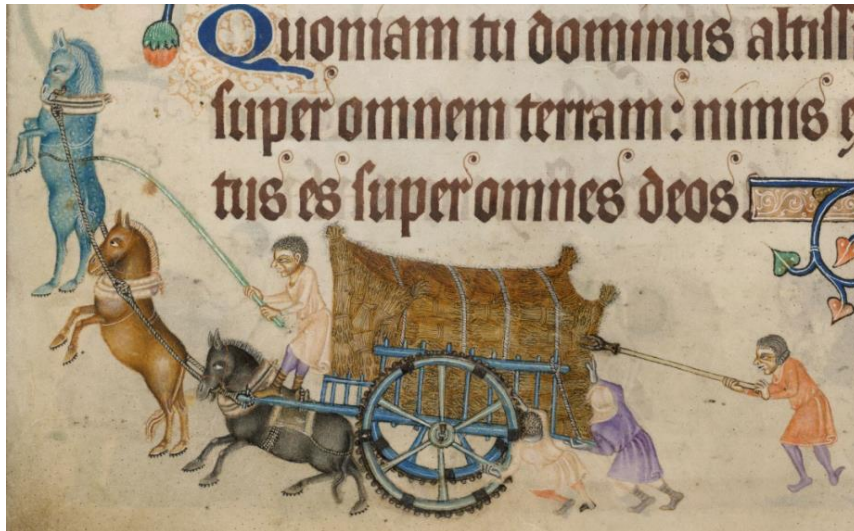 Quoniam tu dominus altiss
super omnem terram: nimis
tus es super omnes deos.